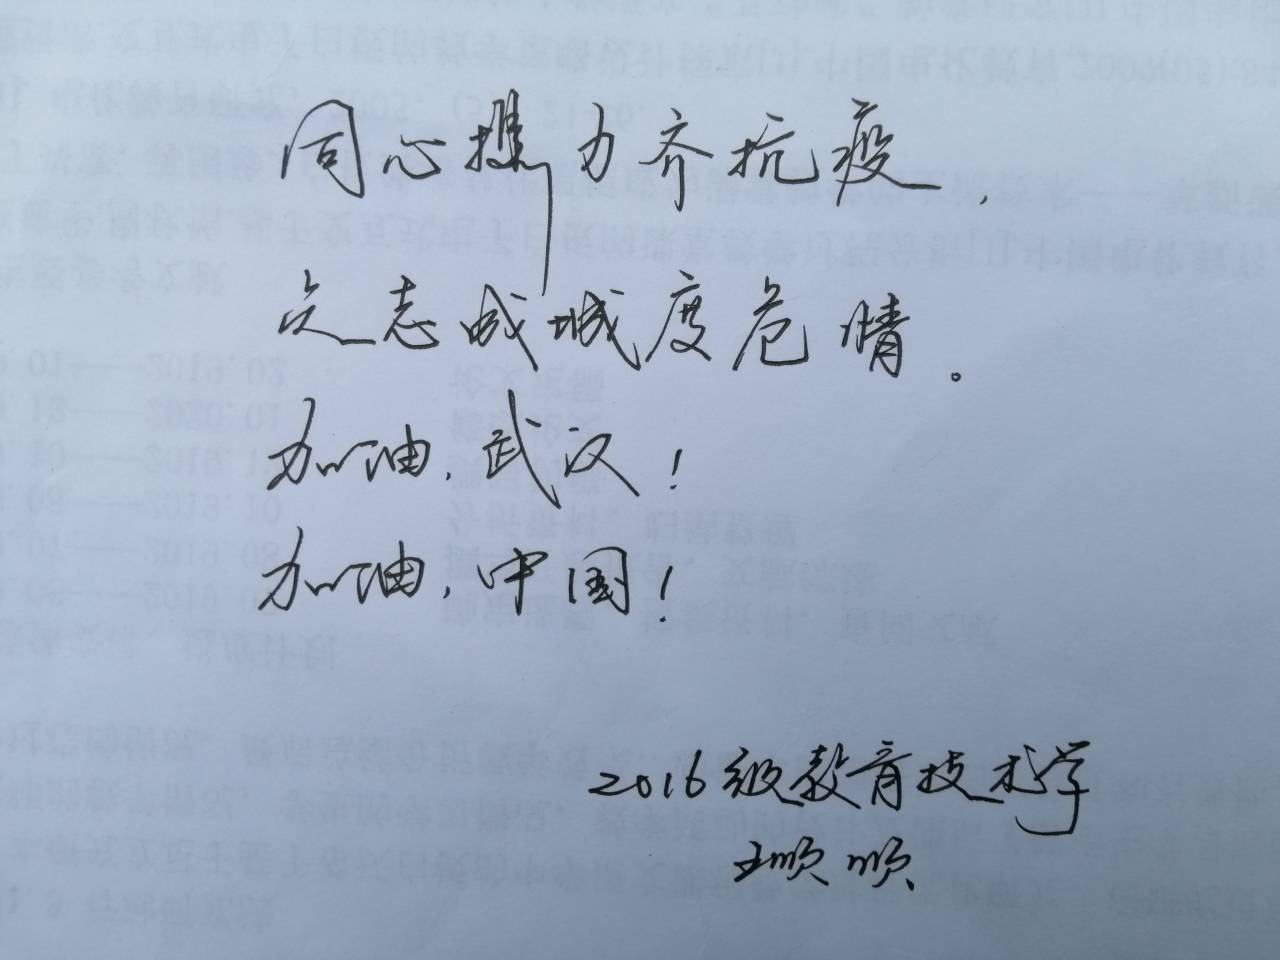 同心携力齐抗疫，
众志成城度危情。
加油，武汉！
加油，中国！
2016级教育技术学
王顺顺